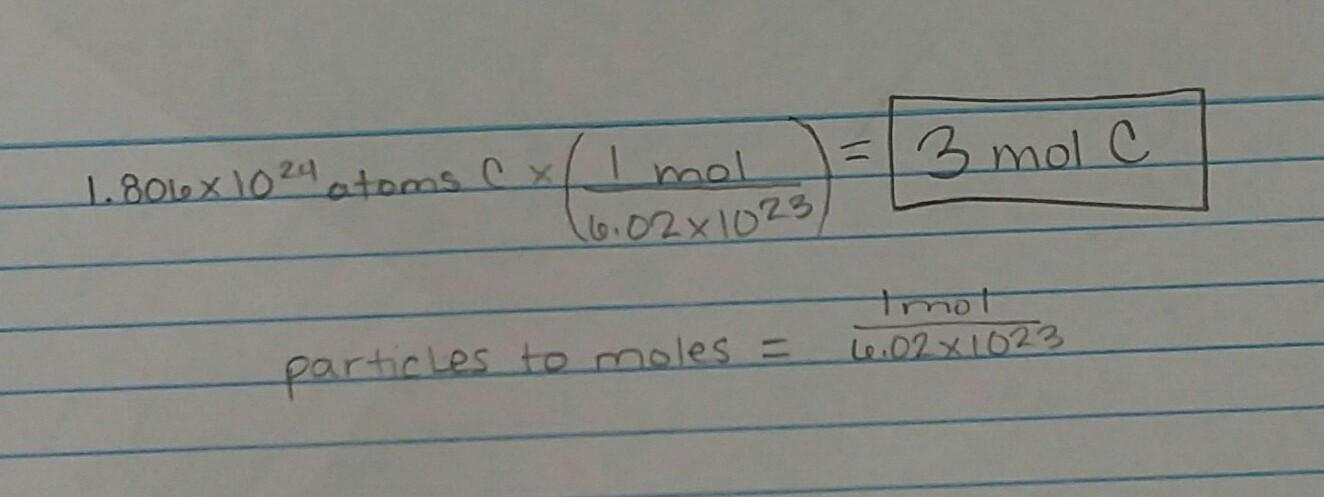 1.806x10²⁴ atoms C x (1 mol / 6.02x10²³) = 3 mol C
particles to moles = 1mol / 6.02x10²³